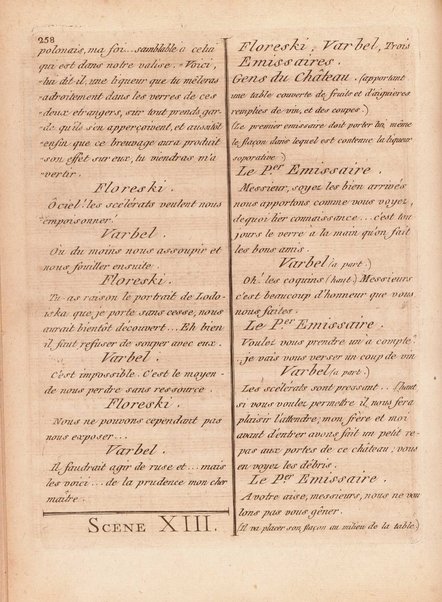 258
polonais, ma foi... samblable a celui
qui est dans notre valise. Voici,
lui dit-il, une liqueur que tu mêleras
adroitement dans les verres de ces
deux etrangers, sur tout prends gar-
de qu'ils s'en apperçoivent, et aussitôt
enfin que ce breuvage aura produit
son effet sur eux, tu viendras m'a
vertir.
Floreski.
O ciel! les scelérats veulent nous
empoisonner!
Varbel.
Ou du moins nous assoupir et
nous fouiller ensuite.
Floreski.
Tu as raison le portrait de Lodo-
iska que je porte sans cesse, nous
aurait bientôt decouvert... Eh bien
il faut refuser de souper avec eux.
Varbel.
C'est impossible. C'est le moyen
de nous perdre sans ressource.
Floreski.
Nous ne pouvons cependant pas
nous exposer...
Varbel.
Il faudrait agir de ruse et... mais
les voici... de la prudence mon cher
maître.
SCENE XIII.
Floreski, Varbel, Trois
Emissaires.
Gens du Château. (apportant
une table couverte de fruits et d'aiguieres
remplies de vin, et des coupes.)
(Le premier emissaire doit porter lui, même
le flacon dans lequel est contenue la liqueur
soporative)
Le Per Emissaire.
Messieur, soyez les bien arrivés
nous apportons comme vous voyez,
de quoi lier connaissance... c'est tou
jours le verre à la main qu'on fait
les bons amis.
Varbel (a part.)
Oh! les coquins (haut.) Messieurs
c'est beaucoup d'honneur que vous
nous faites.
Le Per Emissaire.
Voulez vous prendre un a compte?
je vais vous verser un coup de vin
Varbel (a part.)
Les scelérats sont pressant... (haut
si vous voulez permettre il, nous fera
plaisir l'attendre, mon frère et moi
avant d'entrer avons fait un petit re-
pas aux portes de ce château, vous
en voyez les débris.
Le Per Emissaire.
A votre aise, messieurs, nous ne vou
lons pas vous gêner.
(Il va placer son flacon au milieu de la table.)